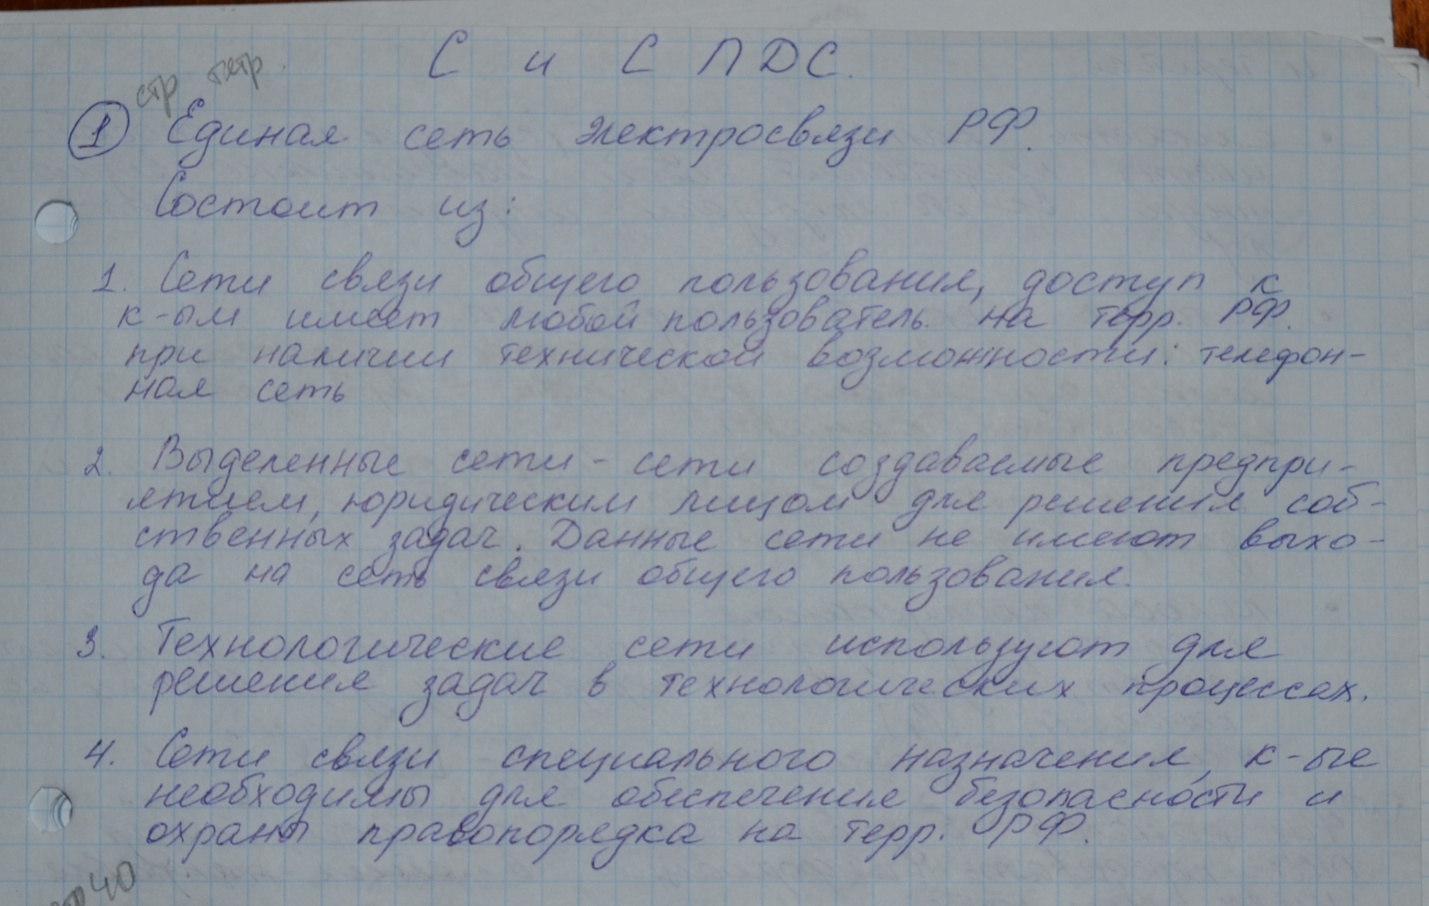 С и С ПДС.
стр
① Единая сеть электросвязи РФ.
Состоит из:
1. Сети связи общего пользования, доступ к
к-ым имеет любой пользователь на терр. РФ.
при наличии технической возможности: телефон-
ная сеть
2. Выделенные сети - сети создаваемые предпри-
ятием, юридическим лицом для решения соб-
ственных задач. Данные сети не имеют выхо-
да на сеть связи общего пользования.
3. Технологические сети используют для
решения задач в технологических процессах.
4. Сети связи специального назначения, к-ые
необходимы для обеспечения безопасности и
охраны правопорядка на терр. РФ.
40